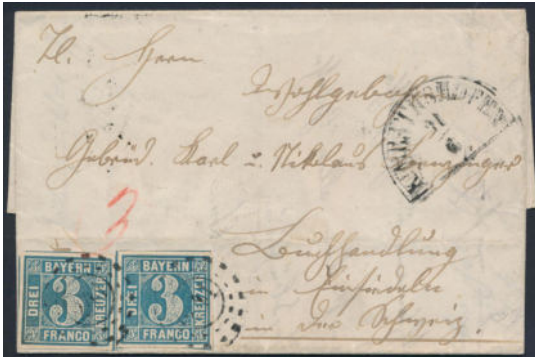 Hl. Herrn
Wohlgeboren
Gebrüd. Karl u. Nikolaus Benziger
Buchhandlung
in Einsiedeln
in der Schweiz.
3
31
BAYERN
DREI
3
KREUZER
FRANCO
BAYERN
DREI
3
KREUZER
FRANCO